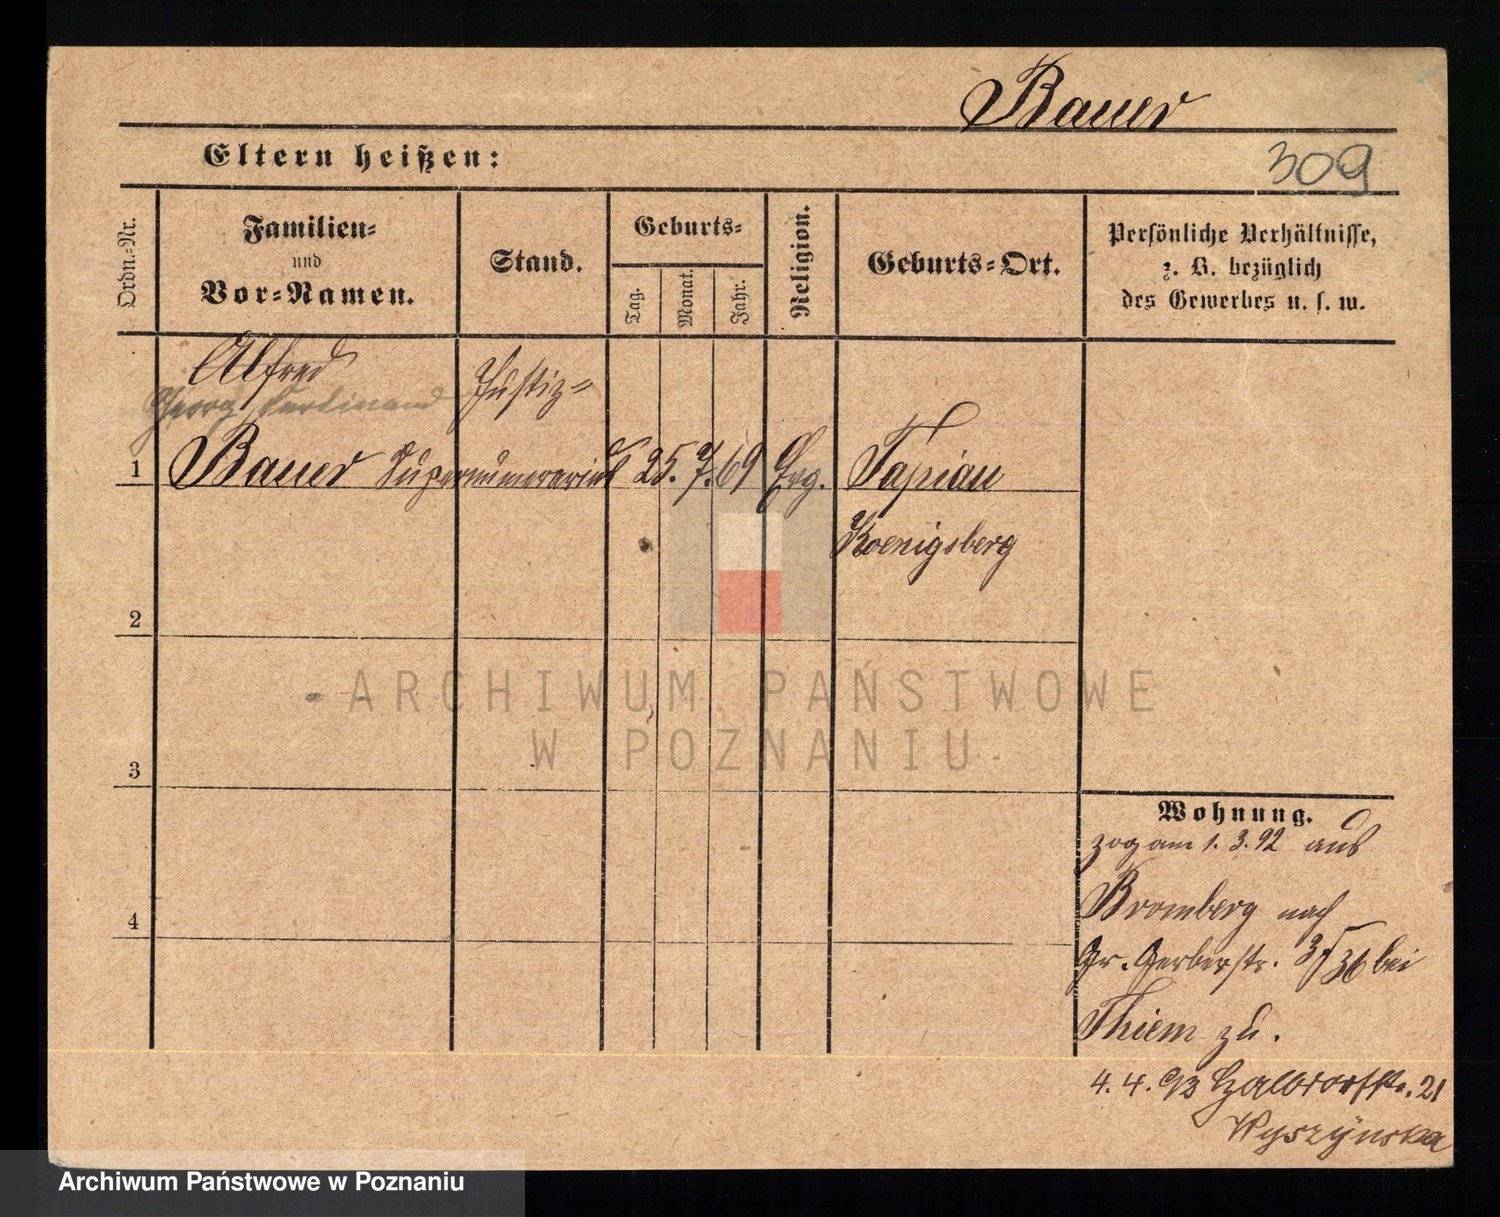 Bauer
Eltern heißen:
309
Ordn.-Nr.
Familien-
und
Vor-Namen.
Stand.
Geburts-
Tag.
Monat.
Jahr.
Religion.
Geburts-Ort.
Persönliche Verhältnisse,
z. B. bezüglich
des Gewerbes u. s. w.
Alfred
Georg Ferdinand
Justiz-
1 Bauer Supernumerarius 25. 7. 69 Evg. Tapiau
Koenigsberg
2
ARCHIWUM PAŃSTWOWE
W POZNANIU
3
Wohnung.
zog am 1. 3. 92 aus
Bromberg nach
4
Gr. Gerberstr. 35/36 bei
Thiem zu.
4. 4. 93 Halbdorfstr. 21
Wyszÿnska
Archiwum Państwowe w Poznaniu